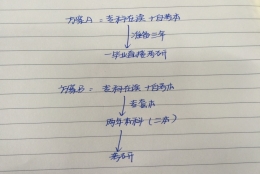 方案A = 专科在读 + 自考本
准备三年
一毕业直接考研
方案B = 专科在读 + 自考本
专套本
两年本科(二本)
考研